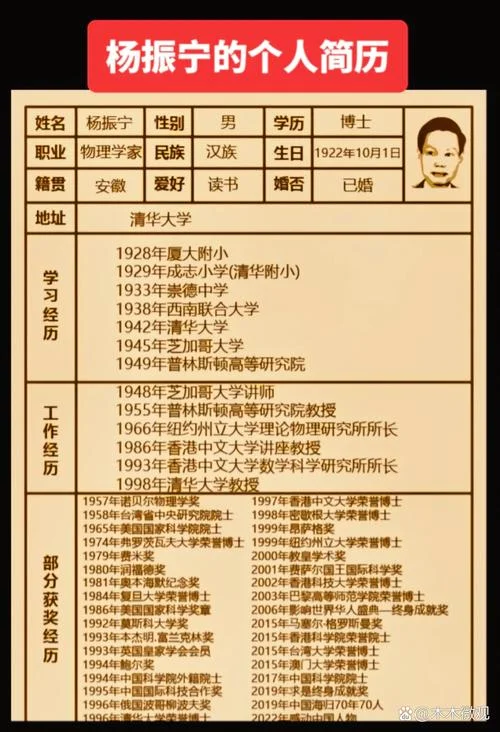 杨振宁的个人简历
姓名 杨振宁 性别 男 学历 博士
职业 物理学家 民族 汉族 生日 1922年10月1日
籍贯 安徽 爱好 读书 婚否 已婚
地址 清华大学
学习经历
1928年厦大附小
1929年成志小学(清华附小)
1933年崇德中学
1938年西南联合大学
1942年清华大学
1945年芝加哥大学
1949年普林斯顿高等研究院
工作经历
1948年芝加哥大学讲师
1955年普林斯顿高等研究院教授
1966年纽约州立大学理论物理研究所所长
1986年香港中文大学讲座教授
1993年香港中文大学数学科学研究所所长
1998年清华大学教授
部分获奖经历
1957年诺贝尔物理学奖
1958年台湾省中央研究院院士
1965年美国国家科学院院士
1974年弗罗茨瓦夫大学荣誉博士
1979年费米奖
1980年润福德奖
1981年奥本海默纪念奖
1984年复旦大学荣誉博士
1986年美国国家科学奖章
1992年莫斯科大学奖
1993年本杰明.富兰克林奖
1993年英国皇家学会会员
1994年鲍尔奖
1994年中国科学院外籍院士
1995年中国国际科技合作奖
1996年俄国波哥柳波夫奖
1996年清华大学荣誉博士
1997年香港中文大学荣誉博士
1998年密歇根大学荣誉博士
1999年昂萨格奖
1999年纽约州立大学荣誉博士
2000年教皇学术奖
2001年费萨尔国王国际科学奖
2002年香港科技大学荣誉博士
2003年巴黎高等师范学院荣誉博士
2006年影响世界华人盛典—终身成就奖
2015年马塞尔·格罗斯曼奖
2015年香港科学院荣誉院士
2015年台湾大学荣誉博士
2015年澳门大学荣誉博士
2017年中国科学院院士
2019年求是终身成就奖
2019年中国海归70年70人
2022年感动中国人物
木木微观